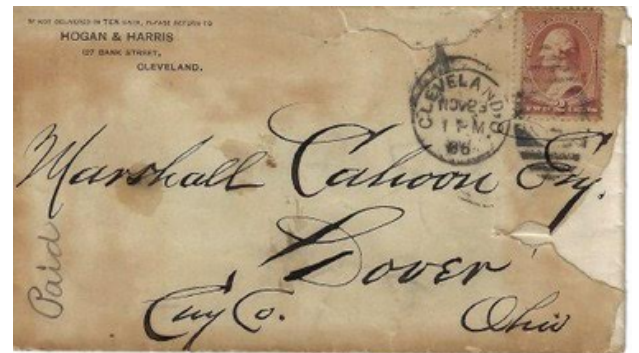 IF NOT DELIVERED IN TEN DAYS, PLEASE RETURN TO
HOGAN & HARRIS
127 BANK STREET,
CLEVELAND.
CLEVELAND, O.
NOV 23
1 PM
86
Marshall Cahoon Esq.
Dover
Cuy Co. Ohio
Paid